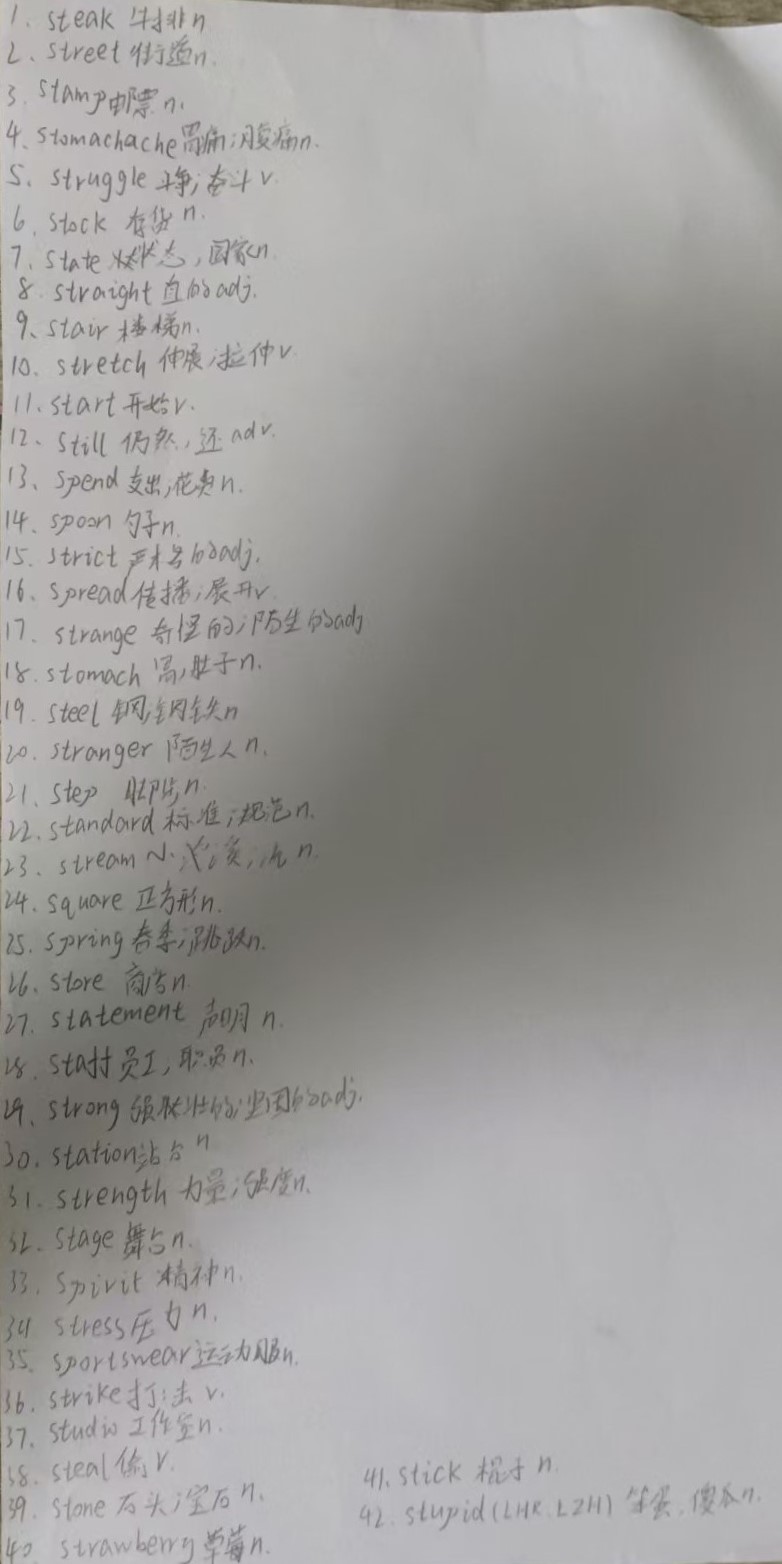 1. steak 牛排n
2. street 街道n.
3. stamp 邮票n.
4. stomachache 胃痛;腹痛n.
5. struggle 斗争;奋斗v.
6. stock 存货n.
7. state 状态,国家n.
8. straight 直的adj.
9. stair 楼梯n.
10. stretch 伸展;拉伸v
11. start 开始v.
12. still 仍然,还adv.
13. spend 支出;花费n.
14. spoon 勺子n.
15. strict 严格的adj.
16. spread 传播;展开v.
17. strange 奇怪的;陌生的adj
18. stomach 胃,肚子n.
19. steel 钢;钢铁n
20. stranger 陌生人n.
21. step n.
22. standard 标准;规范n.
23. stream 小溪; n.
24. square 正方形n.
25. spring 春季;跳跃n.
26. store 商店n.
27. statement 声明n.
28. staff 员工,职员n.
29. strong 强壮的;坚固的adj.
30. station 站台n
31. strength 力量;强度n.
32. stage 舞台n.
33. spirit 精神n.
34 stress 压力n.
35. sportswear 运动服n.
36. strike 打击v.
37. studio 工作室n.
38. steal 偷v.
39. stone 石头;宝石n.
40. strawberry 草莓n.
41. stick 棍子n.
42. stupid(LHR.LZH) 笨蛋.傻瓜n.